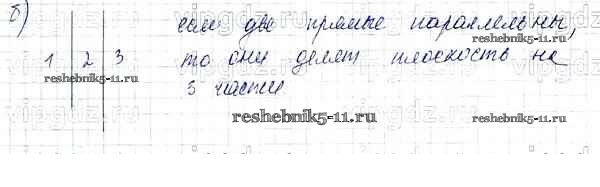 б) если две прямые параллельны,
1 2 3 то они делят плоскость на
3 части
reshebnik5-11.ru
reshebnik5-11.ru
reshebnik5-11.ru
reshebnik5-11.ru
vipgdz
vipgdz
vipgdz